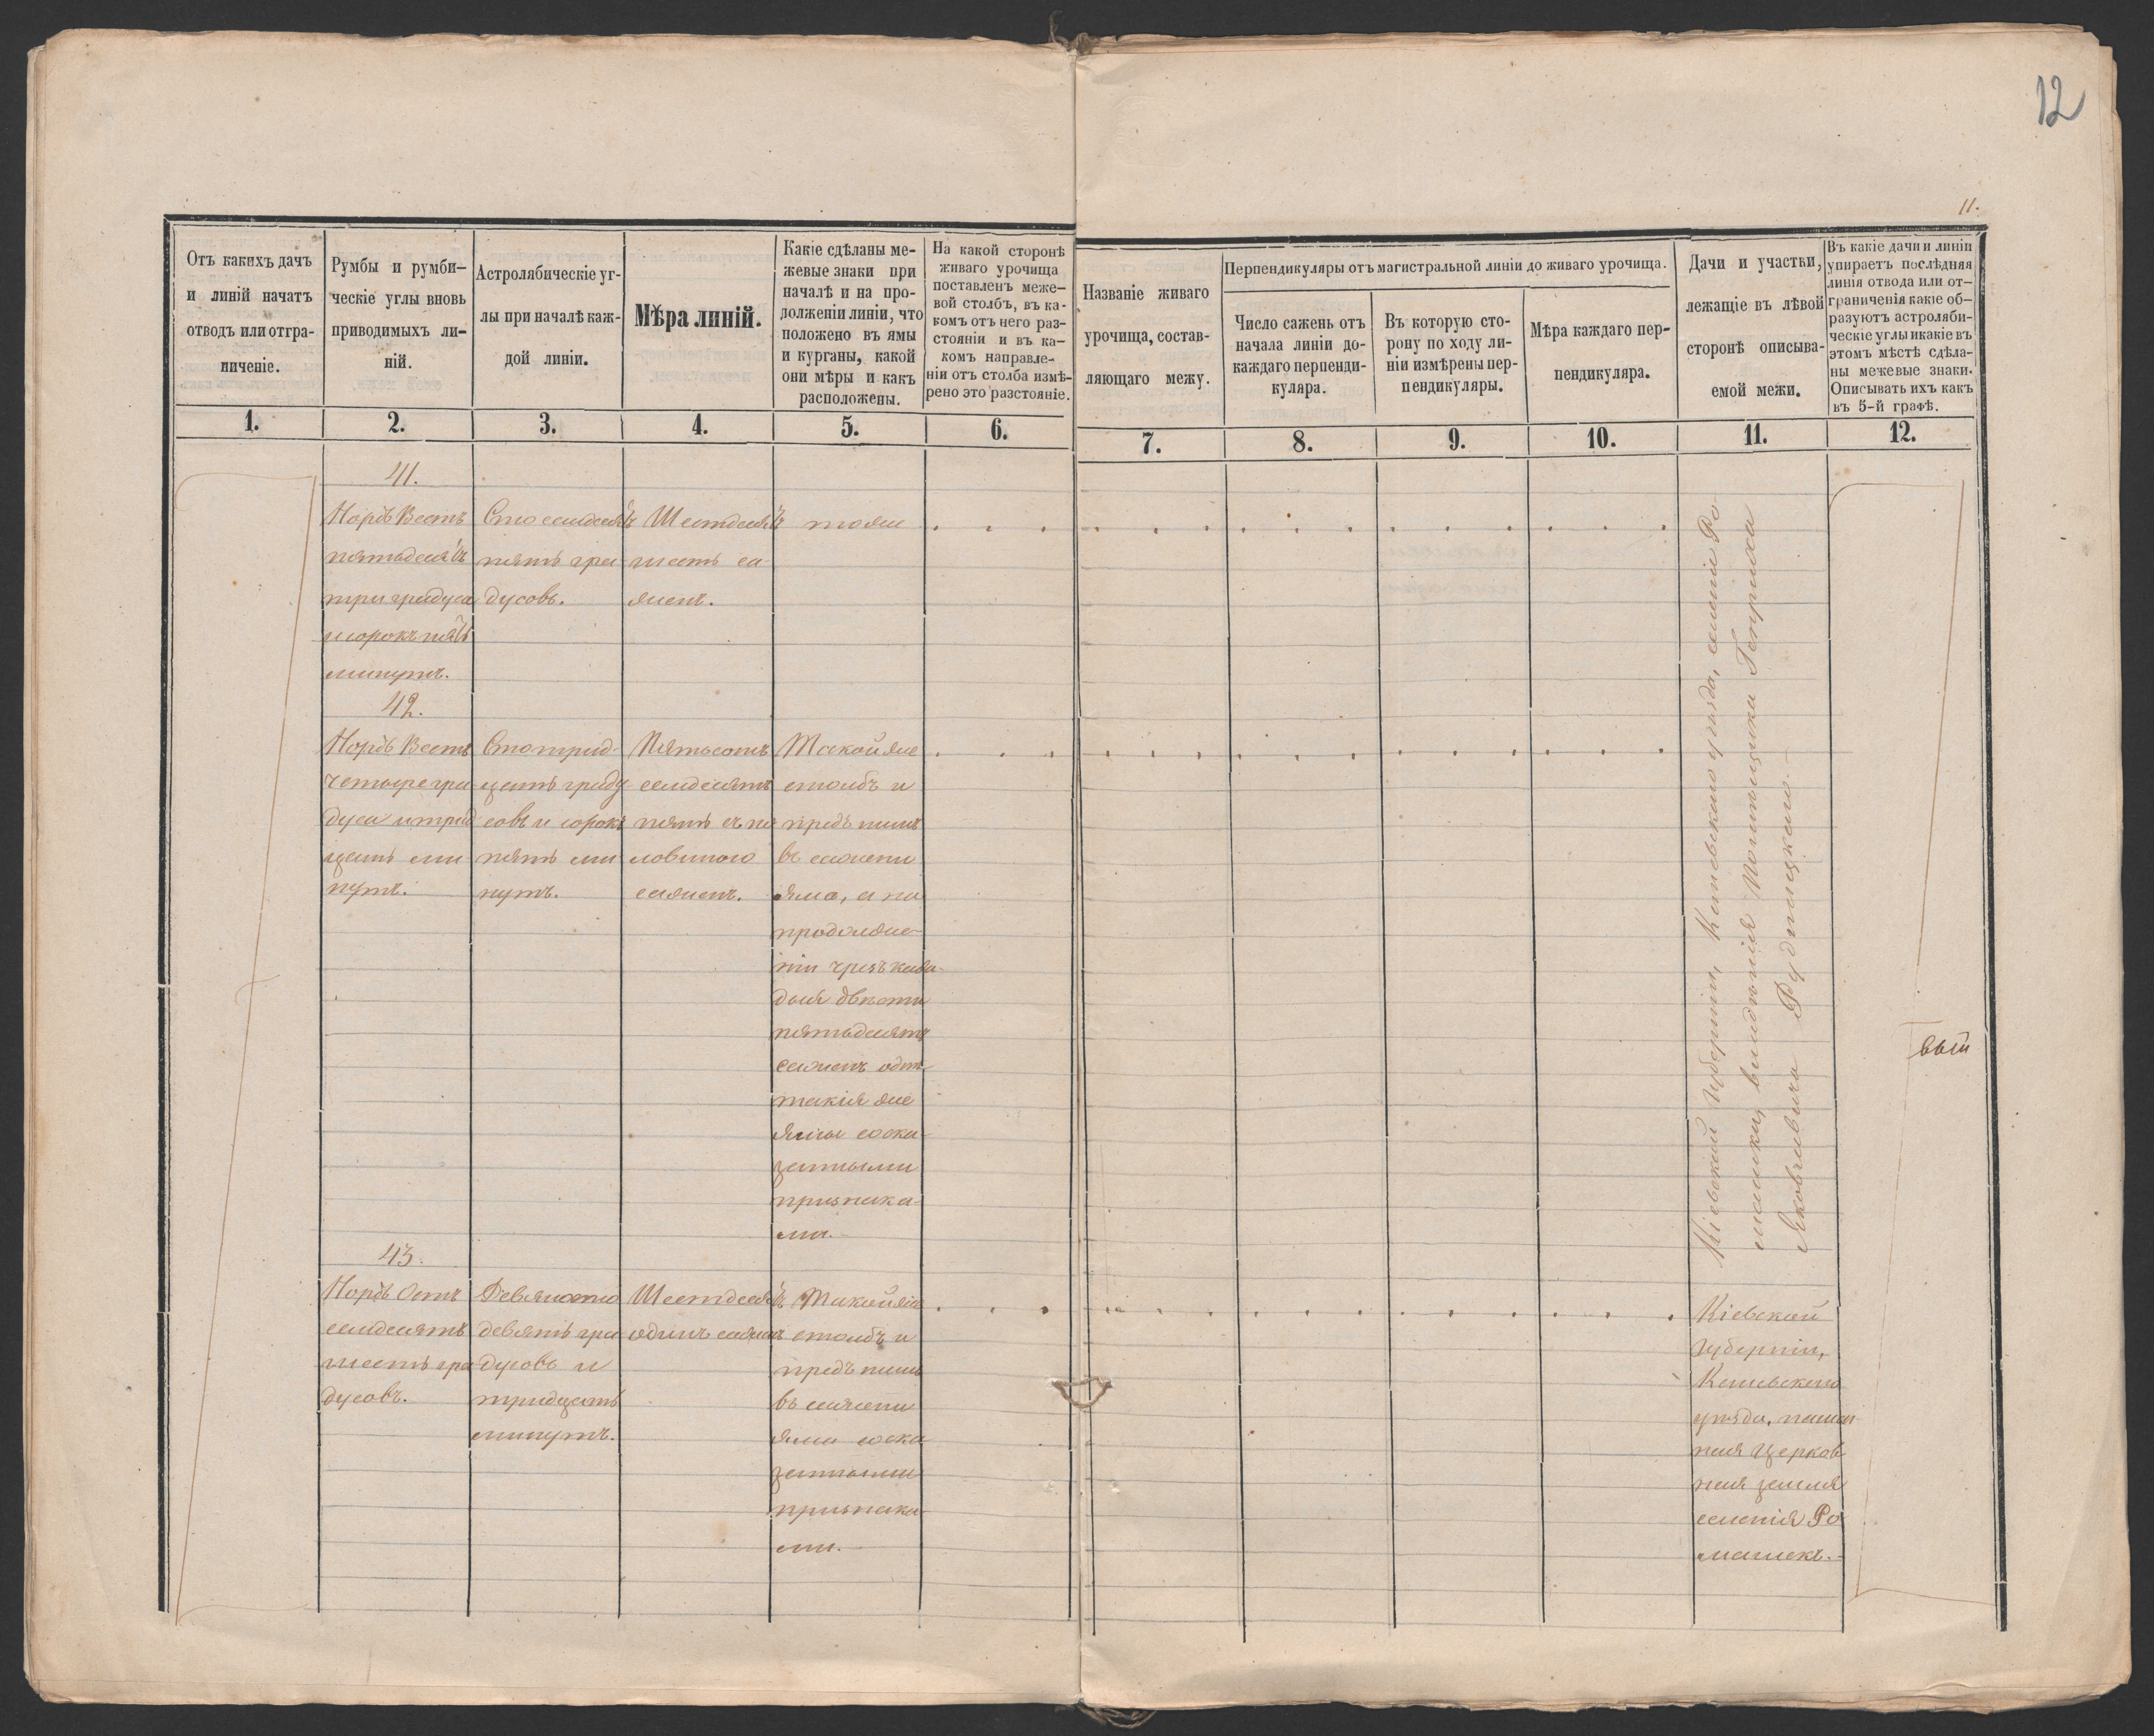 12
11.
Отъ какихъ дачъ
и линій начатъ
отводъ или отгра-
ниченіе.
Румбы и румби-
ческіе углы вновь
приводимыхъ ли-
ній.
Астролябическіе уг-
лы при началѣ каж-
дой линіи.
Мѣра линій.
Какіе сдѣланы ме-
жевые знаки при
началѣ и на про-
долженіи линіи, что
положено въ ямы
и курганы, какой
они мѣры и какъ
расположены.
На какой сторонѣ
живаго урочища
поставленъ меже-
вой столбъ, въ ка-
комъ отъ него раз-
стояніи и въ ка-
комъ направле-
ніи отъ столба измѣ-
рено это разстояніе.
Названіе живаго
урочища, состав-
ляющаго межу.
Перпендикуляры отъ магистральной линіи до живаго урочища.
Число сажень отъ
начала линіи до
каждаго перпенди-
куляра.
Въ которую сто-
рону по ходу ли-
ніи измѣрены пер-
пендикуляры.
Мѣра каждаго пер-
пендикуляра.
Дачи и участки,
лежащіе въ лѣвой
сторонѣ описыва-
емой межи.
Въ какіе дачи и линіи
упираетъ послѣдняя
линія отвода или от-
граниченія какіе об-
разуютъ астроляби-
ческіе углы и какіе въ
этомъ мѣстѣ сдѣла-
ны межевые знаки.
Описывать ихъ какъ
въ 5-й графѣ.
1. 2. 3. 4. 5. 6. 7. 8. 9. 10. 11. 12.
41.
Нордъ Вестъ
пятьдесятъ
три градуса
и сорокъ пять
минутъ.
Сто семдесятъ
пять гра
дусовъ.
Шестдесятъ
шесть са
женъ.
тоже
42.
Нордъ Вестъ
четыре гра
дуса и трид
цать ми
нутъ.
Сто трид-
цать граду
совъ и сорокъ
пять ми
нутъ.
Пятьсотъ
семдесятъ
пять съ по
ловиною
саженъ.
Такой же
столбъ и
предъ нимъ
въ сажени
яма, а на
продолже-
ніи чрезъ каж-
дыя двѣсти
пятьдесятъ
саженъ однѣ
такія же
ямы со ска-
занными
признака-
ми.
43.
Нордъ Остъ
семдесятъ
шесть гра
дусовъ.
Девяносто
девять гра
дусовъ и
тридцать
минутъ.
Шестдесятъ
одинъ сажень
Такой же
столбъ и
предъ нимъ
въ сажени
яма со ска
занными
признака-
ми.
Кіевской Губерніи, Каневскаго уѣзда, селеніи Ро-
машки, владѣнія Помѣщика Генриха
Яковлевича Рудницкаго.
Кіевской
Губерніи,
Каневскаго
уѣзда, пахат
ная Церков
ная земля
селенія Ро
машекъ.